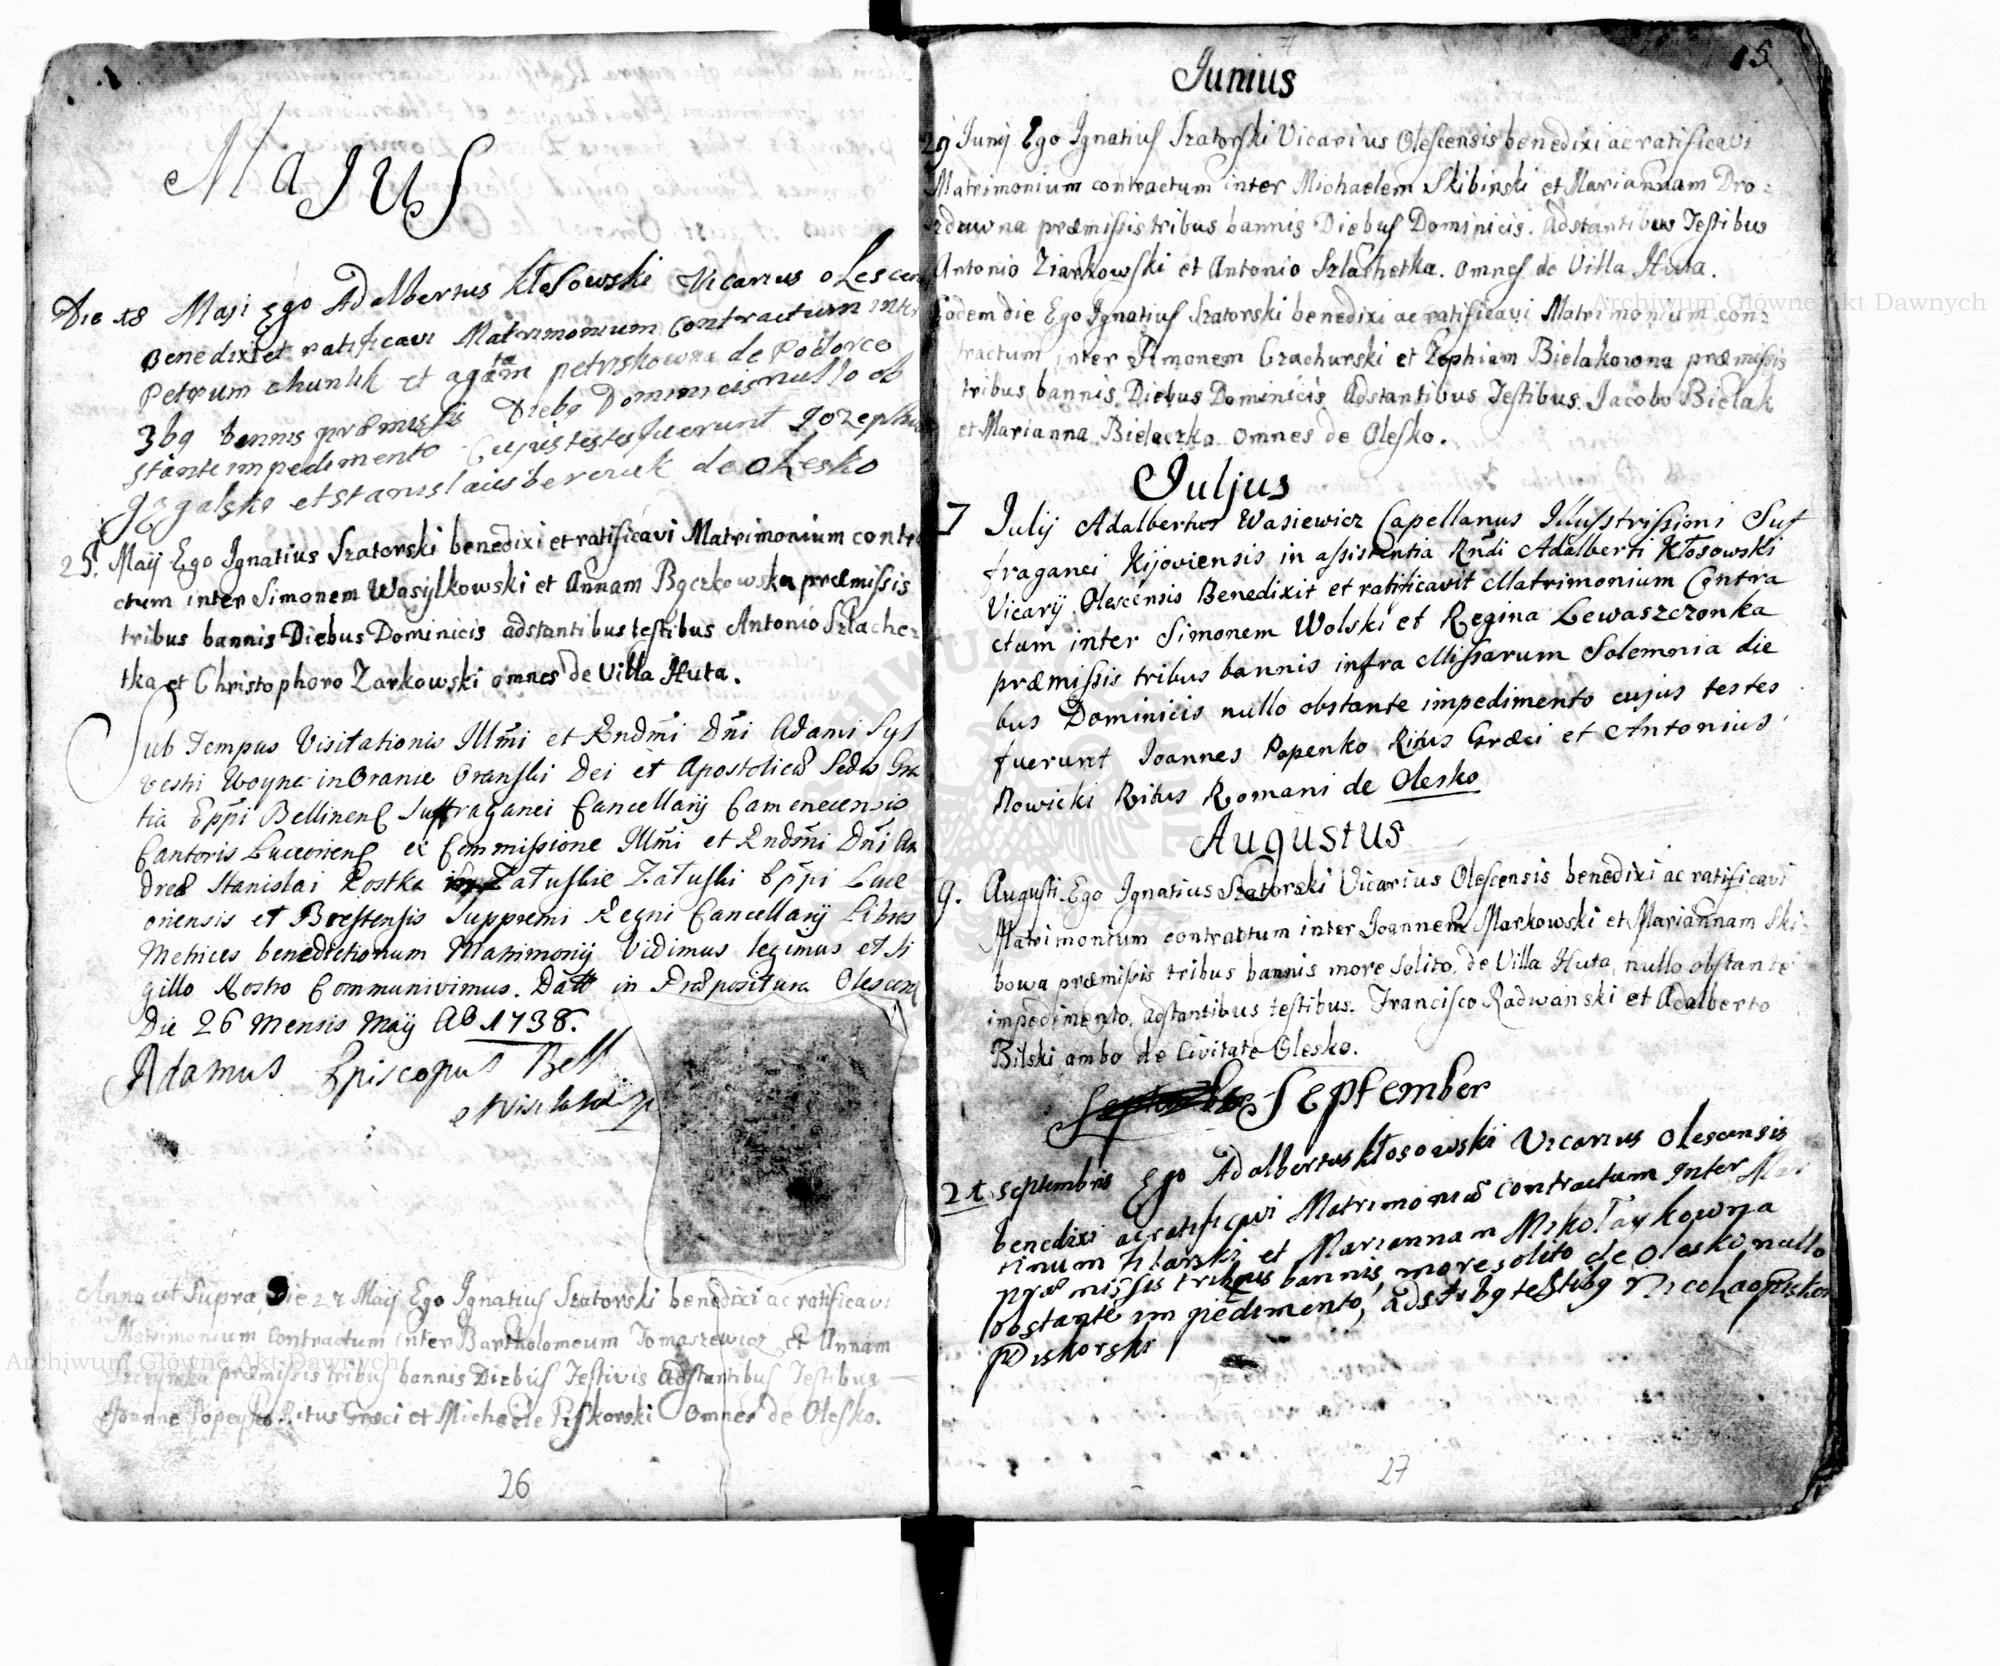 Majus
Die 18 Maji Ego Adalbertus Kłosowski Vicarius Olescen
Benedixi et ratificavi Matrimonium Contractum inter
Petrum chunik et agatam petryskowna de Podorce
3bq bannis præmissis Diebq Dominicis nullo ob
stante impedimento Cujus testes fuerunt Jozephus
et Stanislaus de Olesko
25. Maij Ego Ignatius Szatorski benedixi et ratificavi Matrimonium contra
ctum inter Simonem Wasylkowski et Annam Bączkowska præmissis
tribus bannis Diebus Dominicis adstantibus testibus Antonio Szlache-
tka et Christophoro Zarkowski omnes de Villa Huta.
Sub Tempus Visitationis Illmi et Rndmi Dni Adami Syl
vestri Woyna in Oranie Oranski Dei et Apostolicæ Sedis Gra
tia Eppi Bellinen Suffraganei Cancellarij Camenecensis
Cantoris Luceorien ex Commissione Illmi et Rndmi Dni An
dreæ Stanislai Kostka Załuskie Załuski Eppi Luce
oriensis et Brestensis Suppremi Regni Cancellarij Libros
Metrices benedictionum Matrimonij Vidimus legimus et si
gillo Nostro Communivimus. Datt in Præpositura Olescen
Die 26 Mensis Maij Ao 1738.
Adamus Episcopus Bell
Anno ut Supra, Die 27 Maij Ego Ignatius Szatorski benedixi ac ratificavi
Matrimonium Contractum inter Bartholomeum Tomaszewicz et Annam
præmissis tribus bannis Diebus Festivis Adstantibus Testibus
Joanne Popeyko Ritus Græci et Michaele Piskorski Omnes de Olesko.
26
15
Junius
29 Junij Ego Ignatius Szatorski Vicarius Olescensis benedixi ac ratificavi
Matrimonium contractum inter Michaelem Skibinski et Mariannam Dro-
zdowna præmissis tribus bannis Diebus Dominicis. Adstantibus Testibus
Antonio Ziarkowski et Antonio Szlachetka. Omnes de Villa Huta.
Eodem die Ego Ignatius Szatorski benedixi ac ratificavi Matrimonium con-
tractum inter Simonem Czachurski et Zophiam Bielakowna præmissis
tribus bannis Diebus Dominicis Adstantibus Testibus Jacobo Bielak
et Marianna Bielaczka Omnes de Olesko.
Juljus
7 Julij Adalbertus Wasiewicz Capellanus Illustrissimi Suf
fraganei Kijoviensis in assistentia Rndi Adalberti Kłosowski
Vicarij Olescensis Benedixit et ratificavit Matrimonium Contra
ctum inter Simonem Wolski et Regina Lewaszczonka
præmissis tribus bannis infra Missarum Solemnia die
bus Dominicis nullo obstante impedimento cujus testes
fuerunt Joannes Popenko Ritus Græci et Antonius
Nowicki Ritus Romani de Olesko
Augustus
9. Augusti Ego Ignatius Szatorski Vicarius Olescensis benedixi ac ratificavi
Matrimonium contractum inter Joannem Markowski et Mariannam Ski-
bowa præmissis tribus bannis more solito, de Villa Huta, nullo obstante
impedimento, adstantibus testibus. Francisco Radwanski et Adalberto
Bilski ambo de Civitate Olesko.
September
21 septembris Ego Adalbertus Kłosowski Vicarius Olescensis
benedixi ac ratificavi Matrimoniũ contractum Inter Mar
tinum Filarski et Mariannam Mikołaykowna
præmissis tribus bannis, more solito de Olesko nullo
obstante impedimento, adstbq testibq Nicolao Piskor
Piskorski
27
Archiwum Główne Akt Dawnych
Archiwum Główne Akt Dawnych